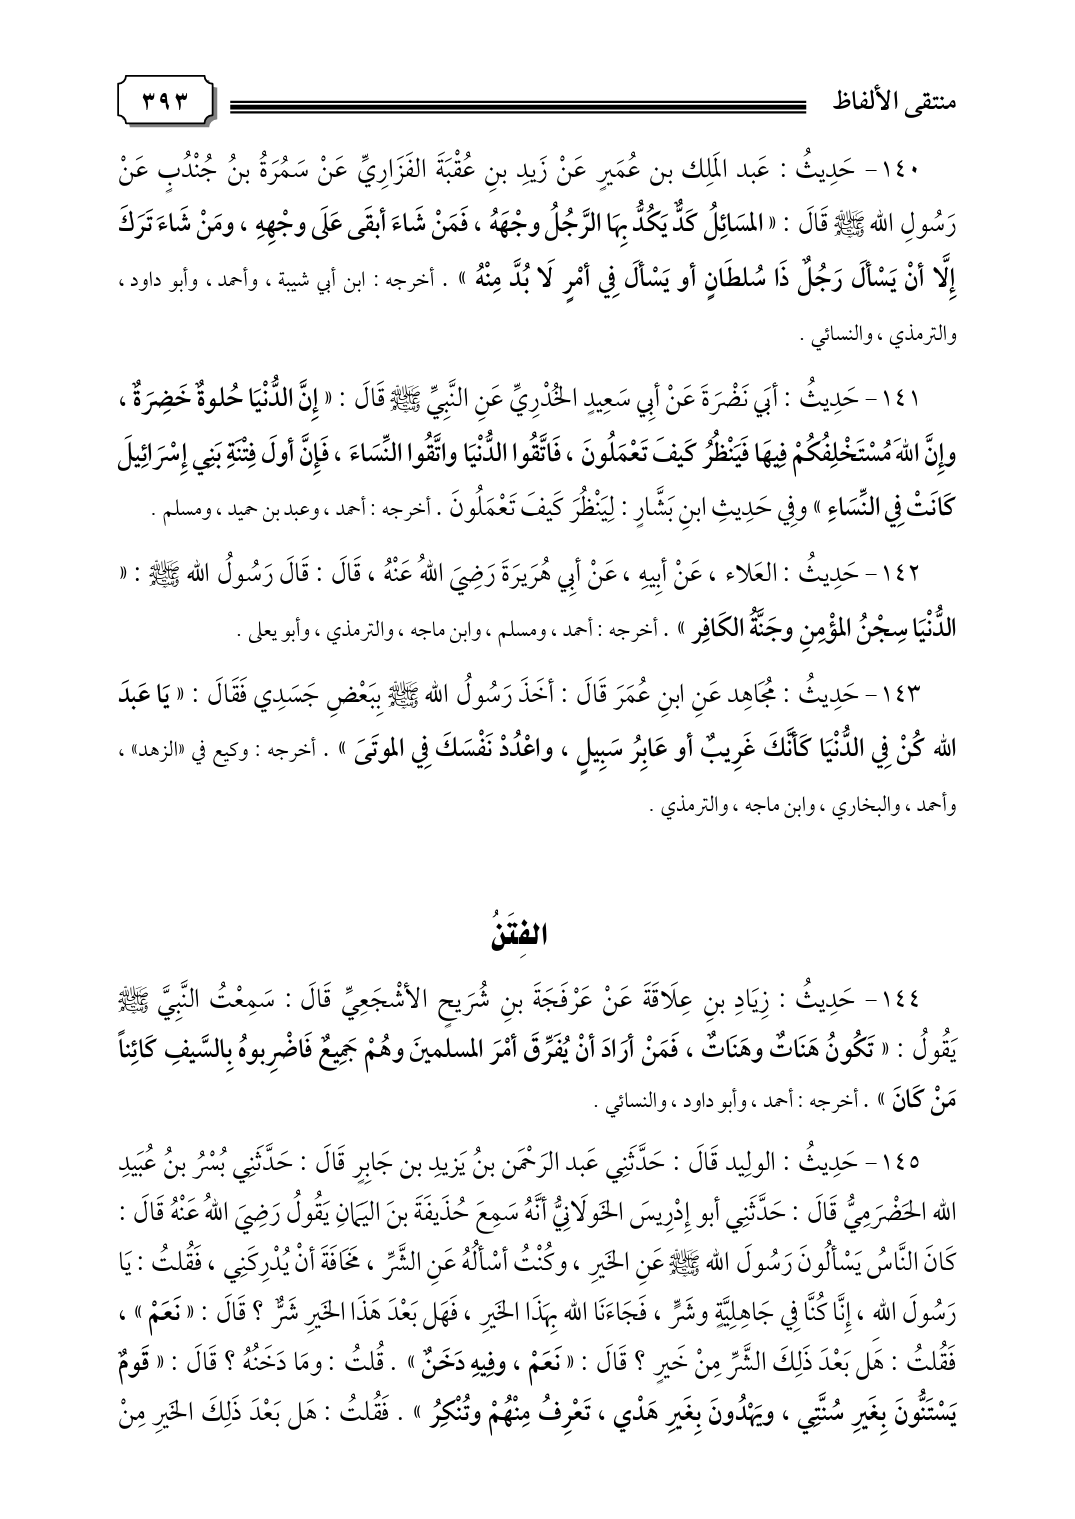 منتقى الألفاظ ٣٩٣
١٤٠- حَدِيثُ : عَبد المَلِك بن عُمَيرٍ عَنْ زَيدِ بنِ عُقْبَةَ الفَزَارِيِّ عَنْ سَمُرَةُ بنُ جُنْدُبٍ عَنْ
رَسُولِ الله ﷺ قَالَ : « المسَائِلُ كَدٌّ يَكُدُّ بِهَا الرَّجُلُ وجْهَهُ ، فَمَنْ شَاءَ أبقَى عَلَى وجْهِهِ ، ومَنْ شَاءَ تَرَكَ
إِلَّا أنْ يَسْألَ رَجُلٌ ذَا سُلطَانٍ أو يَسْألَ فِي أمْرٍ لَا بُدَّ مِنْهُ » . أخرجه : ابن أبي شيبة ، وأحمد ، وأبو داود ،
والترمذي ، والنسائي .
١٤١- حَدِيثُ : أبَي نَضْرَةَ عَنْ أبِي سَعِيدٍ الخُدْرِيِّ عَنِ النَّبِيِّ ﷺ قَالَ : « إِنَّ الدُّنْيَا حُلوةٌ خَضِرَةٌ ،
وإِنَّ اللهَ مُسْتَخْلِفُكُمْ فِيهَا فَيَنْظُرُ كَيفَ تَعْمَلُونَ ، فَاتَّقُوا الدُّنْيَا واتَّقُوا النِّسَاءَ ، فَإِنَّ أولَ فِتْنَةِ بَنِي إِسْرَائِيلَ
كَانَتْ فِي النِّسَاءِ » وفِي حَدِيثِ ابنِ بَشَّارٍ : لِيَنْظُرَ كَيفَ تَعْمَلُونَ . أخرجه : أحمد ، وعبد بن حميد ، ومسلم .
١٤٢- حَدِيثُ : العَلاء ، عَنْ أبِيهِ ، عَنْ أبِي هُرَيرَةَ رَضِيَ اللهُ عَنْهُ ، قَالَ : قَالَ رَسُولُ الله ﷺ : «
الدُّنْيَا سِجْنُ المؤْمِنِ وجَنَّةُ الكَافِر » . أخرجه : أحمد ، ومسلم ، وابن ماجه ، والترمذي ، وأبو يعلى .
١٤٣- حَدِيثُ : مُجَاهِد عَنِ ابنِ عُمَرَ قَالَ : أخَذَ رَسُولُ الله ﷺ بِبَعْضِ جَسَدِي فَقَالَ : « يَا عَبدَ
الله كُنْ فِي الدُّنْيَا كَأنَّكَ غَرِيبٌ أو عَابِرُ سَبِيلٍ ، واعْدُدْ نَفْسَكَ فِي الموتَى » . أخرجه : وكيع في «الزهد» ،
وأحمد ، والبخاري ، وابن ماجه ، والترمذي .
الفِتَنُ
١٤٤- حَدِيثُ : زِيَادِ بنِ عِلَاقَةَ عَنْ عَرْفَجَةَ بنِ شُرَيحٍ الأشْجَعِيِّ قَالَ : سَمِعْتُ النَّبِيَّ ﷺ
يَقُولُ : « تَكُونُ هَنَاتٌ وهَنَاتٌ ، فَمَنْ أرَادَ أنْ يُفَرِّقَ أمْرَ المسلمينَ وهُمْ جَمِيعٌ فَاضْرِبوهُ بِالسَّيفِ كَائِناً
مَنْ كَانَ » . أخرجه : أحمد ، وأبو داود ، والنسائي .
١٤٥- حَدِيثُ : الولِيد قَالَ : حَدَّثَنِي عَبد الرَحْمَن بنُ يَزيدِ بن جَابِرٍ قَالَ : حَدَّثَنِي بُسْرُ بنُ عُبَيدِ
الله الحَضْرَمِيُّ قَالَ : حَدَّثَنِي أبو إِدْرِيسَ الخَولَانِيُّ أنَّهُ سَمِعَ حُذَيفَةَ بنَ اليَمَانِ يَقُولُ رَضِيَ اللهُ عَنْهُ قَالَ :
كَانَ النَّاسُ يَسْألُونَ رَسُولَ الله ﷺ عَنِ الخَيرِ ، وكُنْتُ أسْألُهُ عَنِ الشَّرِّ ، مَخَافَةَ أنْ يُدْرِكَنِي ، فَقُلتُ : يَا
رَسُولَ الله ، إِنَّا كُنَّا فِي جَاهِلِيَّةٍ وشَرٍّ ، فَجَاءَنَا الله بِهَذَا الخَيرِ ، فَهَل بَعْدَ هَذَا الخَيرِ شَرٌّ ؟ قَالَ : « نَعَمْ » ،
فَقُلتُ : هَل بَعْدَ ذَلِكَ الشَّرِّ مِنْ خَيرٍ ؟ قَالَ : « نَعَمْ ، وفِيهِ دَخَنٌ » . قُلتُ : ومَا دَخَنُهُ ؟ قَالَ : « قَومٌ
يَسْتَنُّونَ بِغَيرِ سُنَّتِي ، ويَهْدُونَ بِغَيرِ هَدْيِ ، تَعْرِفُ مِنْهُمْ وتُنْكِرُ » . فَقُلتُ : هَل بَعْدَ ذَلِكَ الخَيرِ مِنْ